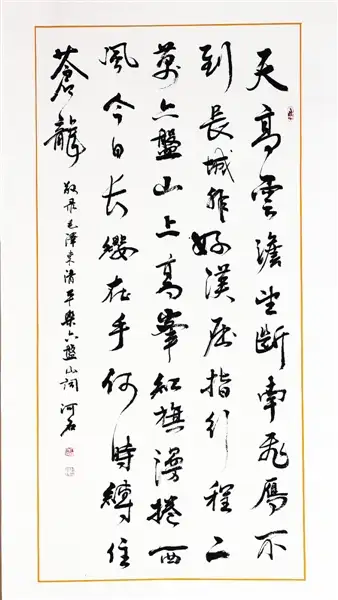 天高雲澹望断南飛雁不
到長城非好漢屈指行程二
萬六盤山上高峯紅旗漫捲西
風今日长纓在手何時縛住
蒼龍
敬录毛澤东清平樂六盤山詞 河石